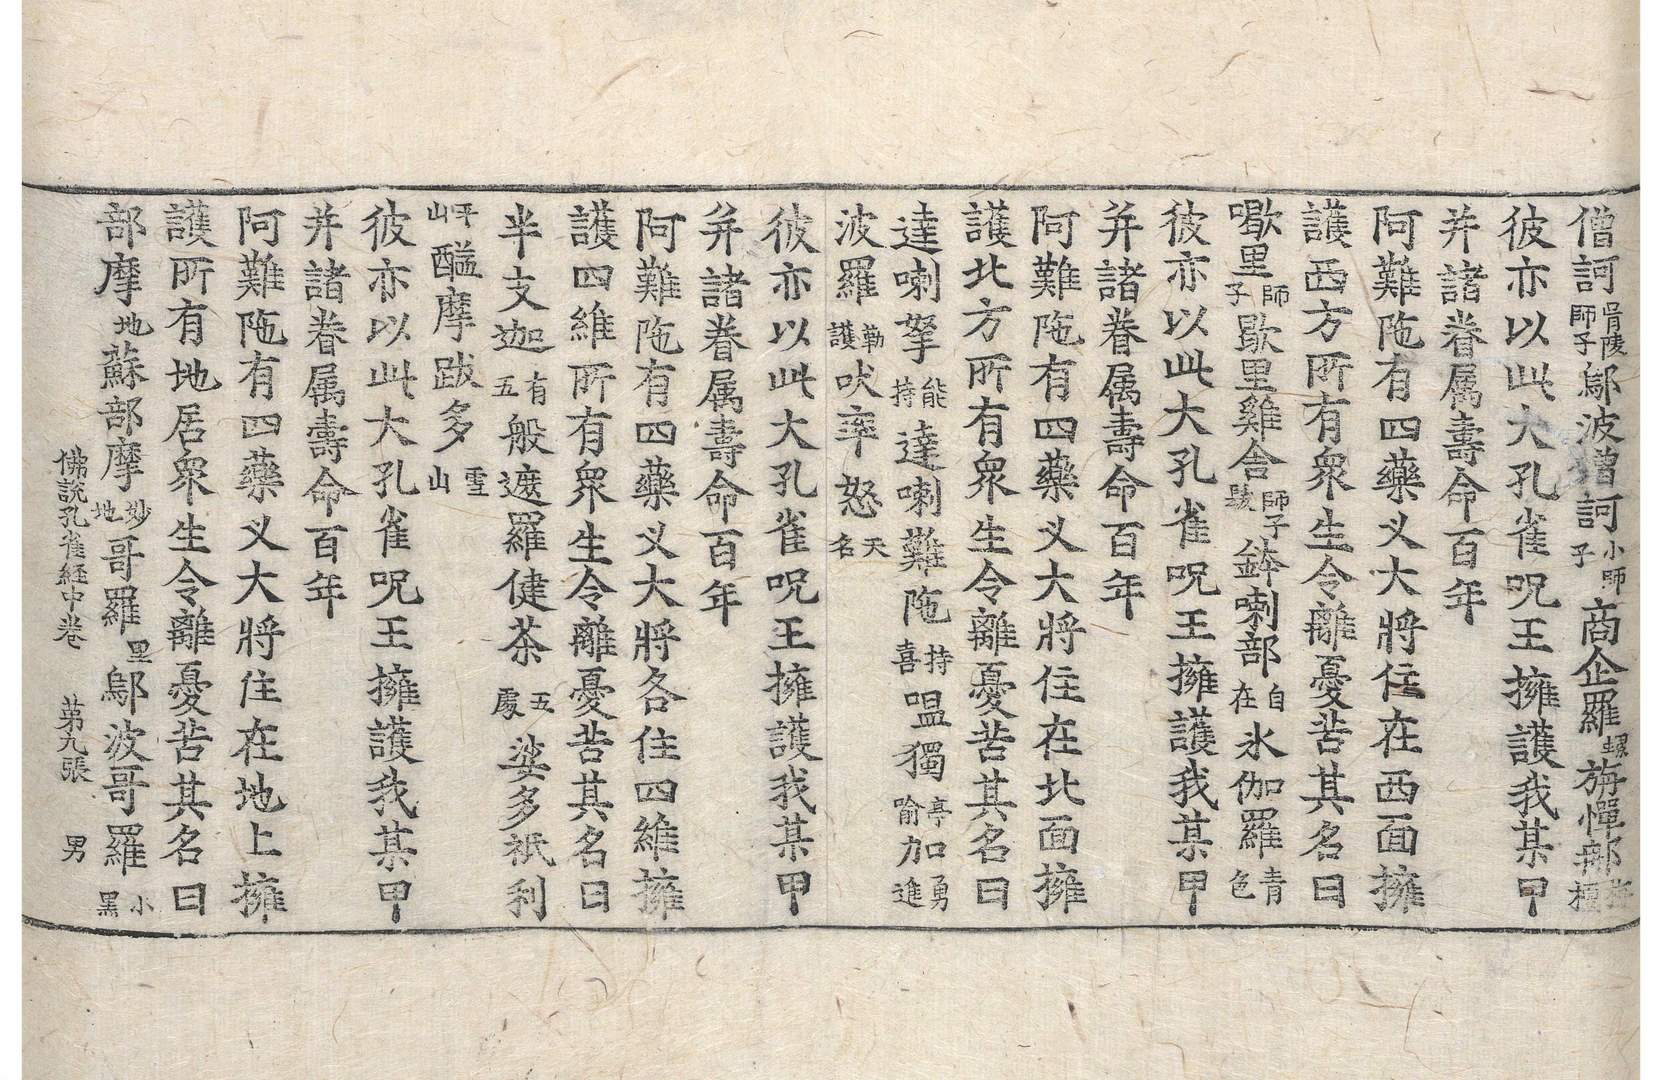 僧訶師子鄔波僧訶小師子商企羅螺旃憚那
彼亦以此大孔雀呪王擁護我某甲
并諸眷属壽命百年
阿難陁有四藥义大將住在西面擁
護西方所有衆生令離憂苦其名曰
歇里師子歇里雞舍師子髮鉢喇部自在氷伽羅青色
彼亦以此大孔雀呪王擁護我某甲
并諸眷属壽命百年
阿難陁有四藥义大將住在北面擁
護北方所有衆生令離憂苦其名曰
達喇拏能持達喇難陁持喜嗢獨亭喻加勇進
波羅勤護吠率怒天名
彼亦以此大孔雀呪王擁護我某甲
并諸眷属壽命百年
阿難陁有四藥义大將各住四維擁
護四維所有衆生令離憂苦其名曰
半支迦有五般遮羅健荼五處娑多祇利
平山醯摩跋多雪山
彼亦以此大孔雀呪王擁護我某甲
并諸眷属壽命百年
阿難陁有四藥义大將住在地上擁
護所有地居衆生令離憂苦其名曰
部摩地蘇部摩妙地哥羅黑鄔波哥羅小黑
佛說孔雀経中卷 第九張 男